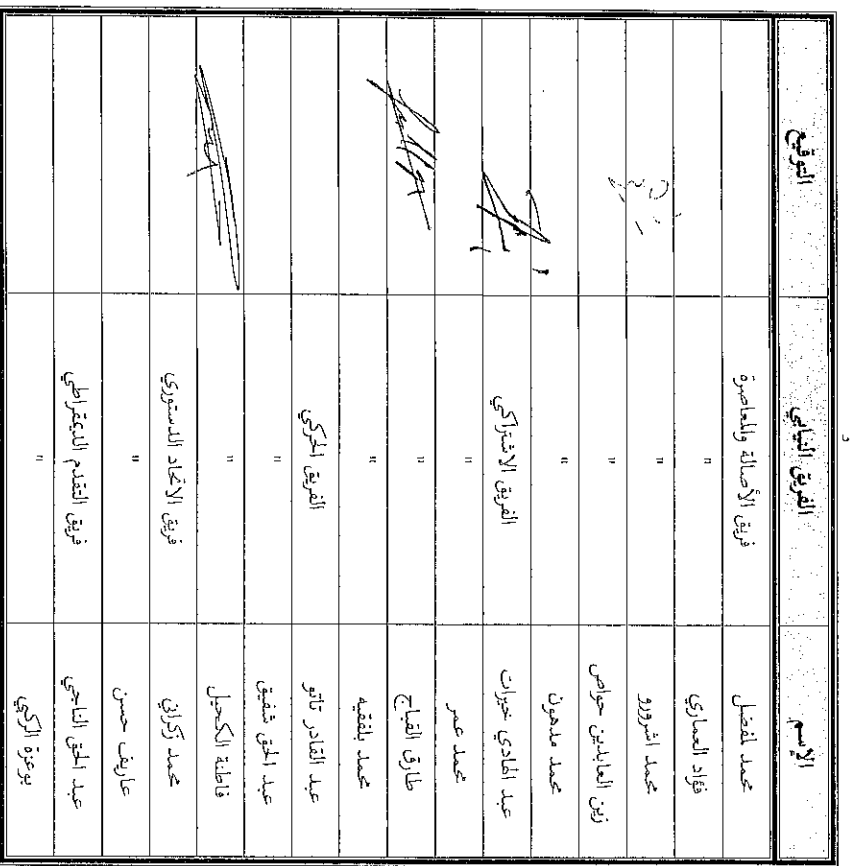 الإسم الفريق النيابي التوقيع
محمد لمفضل فريق الأصالة والمعاصرة
فؤاد العماري "
محمد اشرورو "
زين العابدين حواص "
محمد مدهون "
عبد الهادي خيرات الفريق الاشتراكي
محمد عمر "
طارق القباج "
محمد بلفقيه "
عبد القادر تاتو الفريق الحركي
عبد الحق شفيق "
فاطنة الكحيل "
محمد زكراني فريق الاتحاد الدستوري
عاريف حسن "
عبد الحق الناجي فريق التقدم الديمقراطي
بوعزة الركبي "